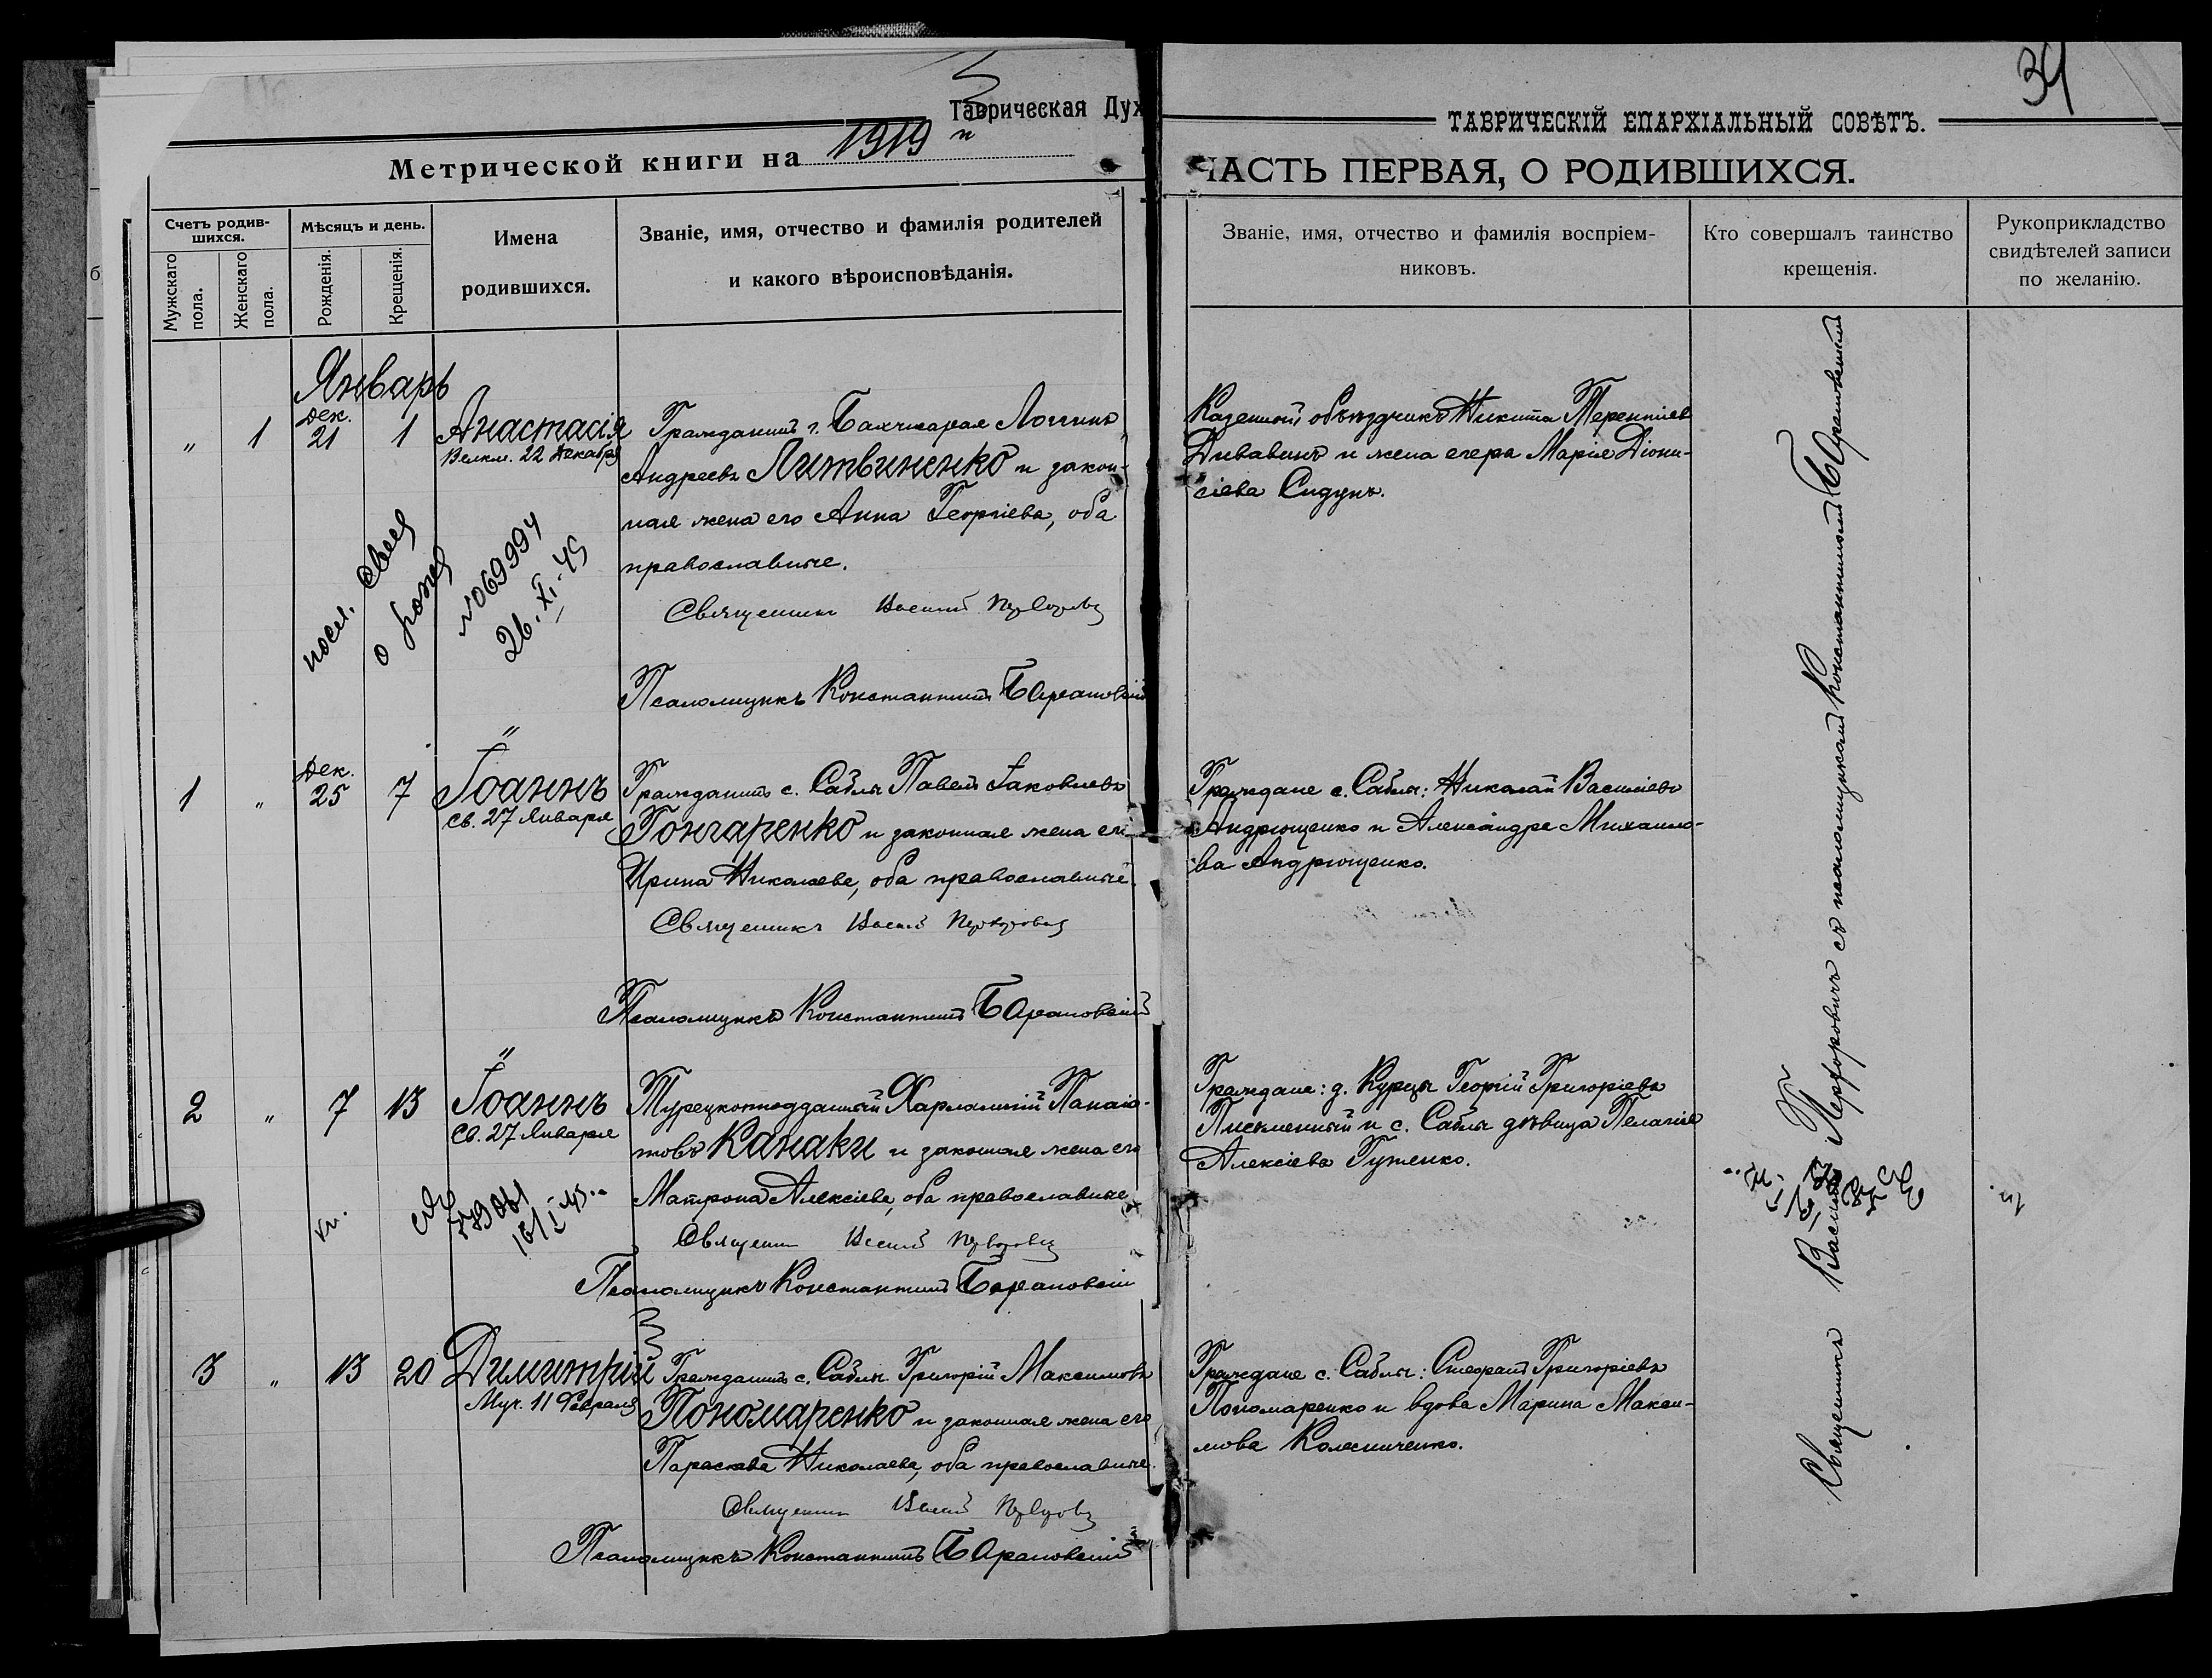 34
Таврическая Дух
Метрической книги на 1919
ТАВРИЧЕСКІЙ ЕПАРХІАЛЬНЫЙ СОВѢТЪ.
ЧАСТЬ ПЕРВАЯ, О РОДИВШИХСЯ.
Счетъ родив-
шихся.
Мужскаго
пола.
Женскаго
пола.
Мѣсяцъ и день.
Рожденія.
Крещенія.
Имена
родившихся.
Званіе, имя, отчество и фамилія родителей
и какого вѣроисповѣданія.
Званіе, имя, отчество и фамилія воспріем-
никовъ.
Кто совершалъ таинство
крещенія.
Рукоприкладство
свидѣтелей записи
по желанію.
Январь
" 1 Дек. 21 1
Анастасія
Велкм. 22 Декабря
Гражданинъ г. Бахчисарая Логинъ
Андреевъ Литвиненко и закон-
ная жена его Анна Георгіева, оба
православные.
Священникъ
Псаломщикъ Константинъ Барановскій
№069994
26.XI-45
Казенный объѣздчикъ Никита Терентіевъ
и жена егеря Марія Діони-
сіева Сидунъ.
1 " Дек. 25 7
Іоаннъ
Св. 27 Января
Гражданинъ с. Саблы Павелъ Іаковлевъ
Гончаренко и законная жена его
Ирина Николаева, оба православные.
Священникъ
Псаломщикъ Константинъ Барановскій
Граждане с. Саблы: Николай Васильевъ
Андрющенко и Александра Михаило-
ва Андрющенко.
2 " 7 13
Іоаннъ
Св. 27 Января
Турецкоподданный Харлампій Панаіо-
товъ Канаки и законная жена его
Матрона Алексіева, оба православные
Священникъ
Псаломщикъ Константинъ Барановскій
Граждане: д. Курцы Георгій Григоріевъ
Письменный и с. Саблы дѣвица Пелагія
Алексіева Гуженко.
3 " 13 20
Димитрій
Муч. 11 Февраля
Гражданинъ с. Саблы Григорій Максимовъ
Пономаренко и законная жена его
Параскева Николаева, оба православные.
Священникъ
Псаломщикъ Константинъ Барановскій
Граждане с. Саблы: Стефанъ Григоріевъ
Пономаренко и вдова Марина Макси-
мова Колесниченко.
Священникъ Василій съ псаломщикомъ Константиномъ Барановскимъ